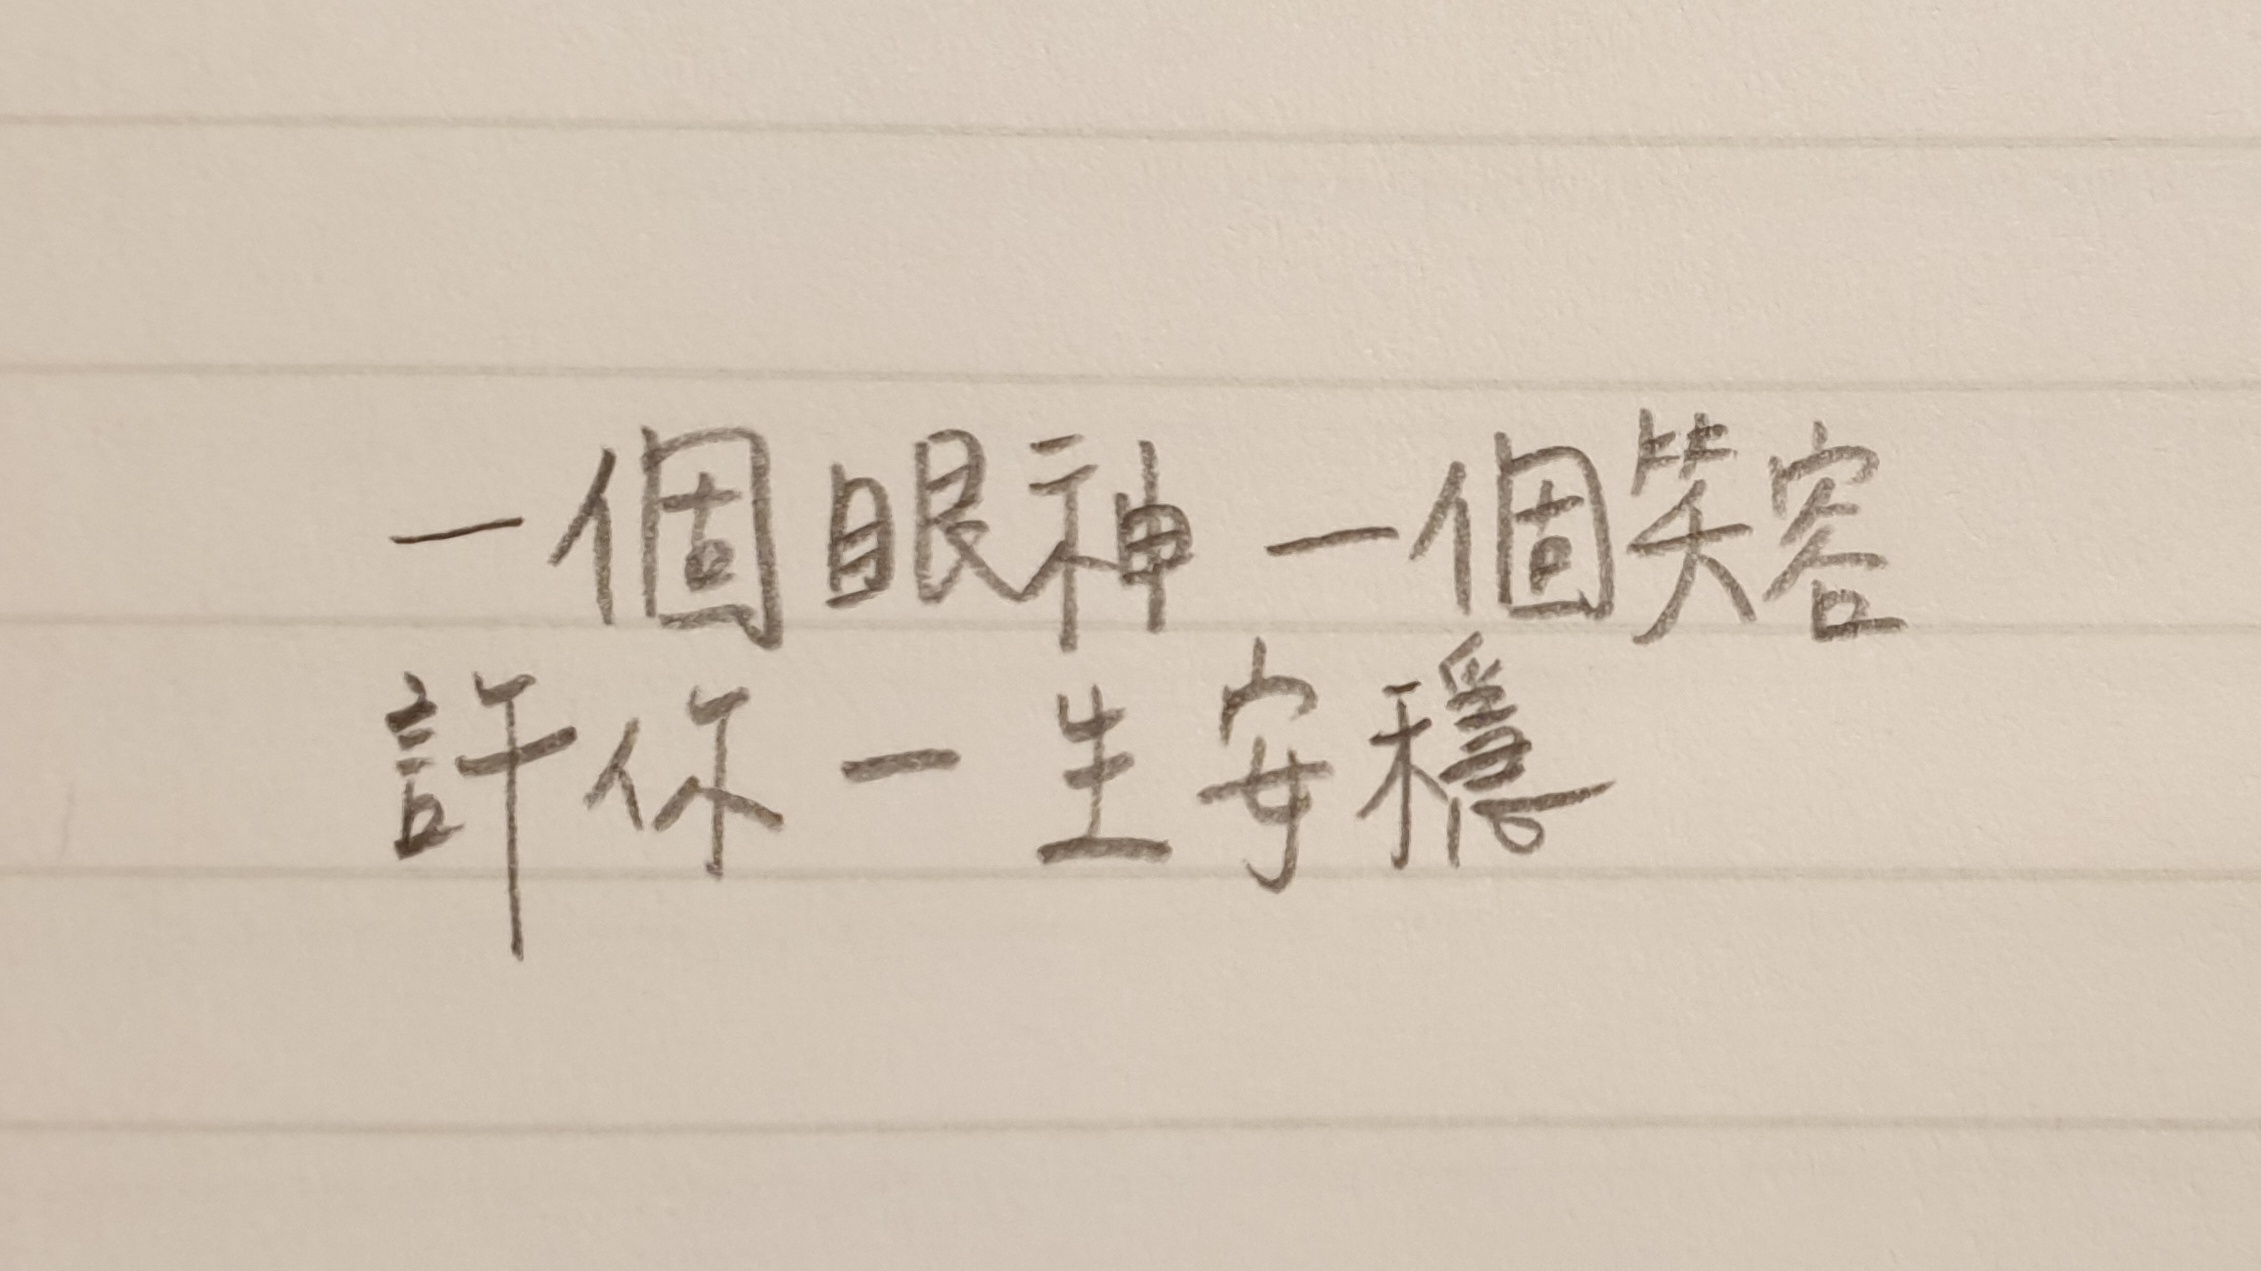 一個眼神一個笑容
許你一生安穩